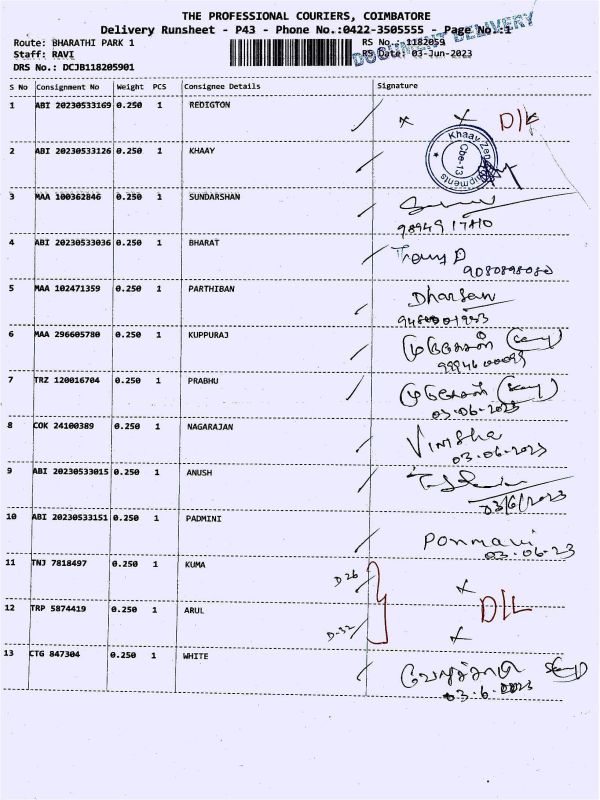 THE PROFESSIONAL COURIERS, COIMBATORE
Delivery Runsheet - P43 - Phone No.:0422-3505555 - Page No.:1
DOCUMENT DELIVERY
Route: BHARATHI PARK 1 RS No.: 1182059
Staff: RAVI RS Date: 03-Jun-2023
DRS No.: DCJB118205901
S No Consignment No Weight PCS Consignee Details Signature
1 ABI 20230533169 0.250 1 REDIGTON x x D/L
2 ABI 20230533126 0.250 1 KHAAY
Khaay Cbe-13
3 MAA 100362846 0.250 1 SUNDARSHAN
98949 17810
4 ABI 20230533036 0.250 1 BHARAT
9080898080
5 MAA 102471359 0.250 1 PARTHIBAN Dharsan
6 MAA 296605780 0.250 1 KUPPURAJ முருகேசன்
7 TRZ 120016704 0.250 1 PRABHU முருகேசன்
03-06-2023
8 COK 24100389 0.250 1 NAGARAJAN
03.06.2023
9 ABI 20230533015 0.250 1 ANUSH
03/6/2023
10 ABI 20230533151 0.250 1 PADMINI Ponmani
03-06-23
11 TNJ 7818497 0.250 1 KUMA D26 x
D/L
12 TRP 5874419 0.250 1 ARUL D-32 x
13 CTG 847304 0.250 1 WHITE
03.6.2023